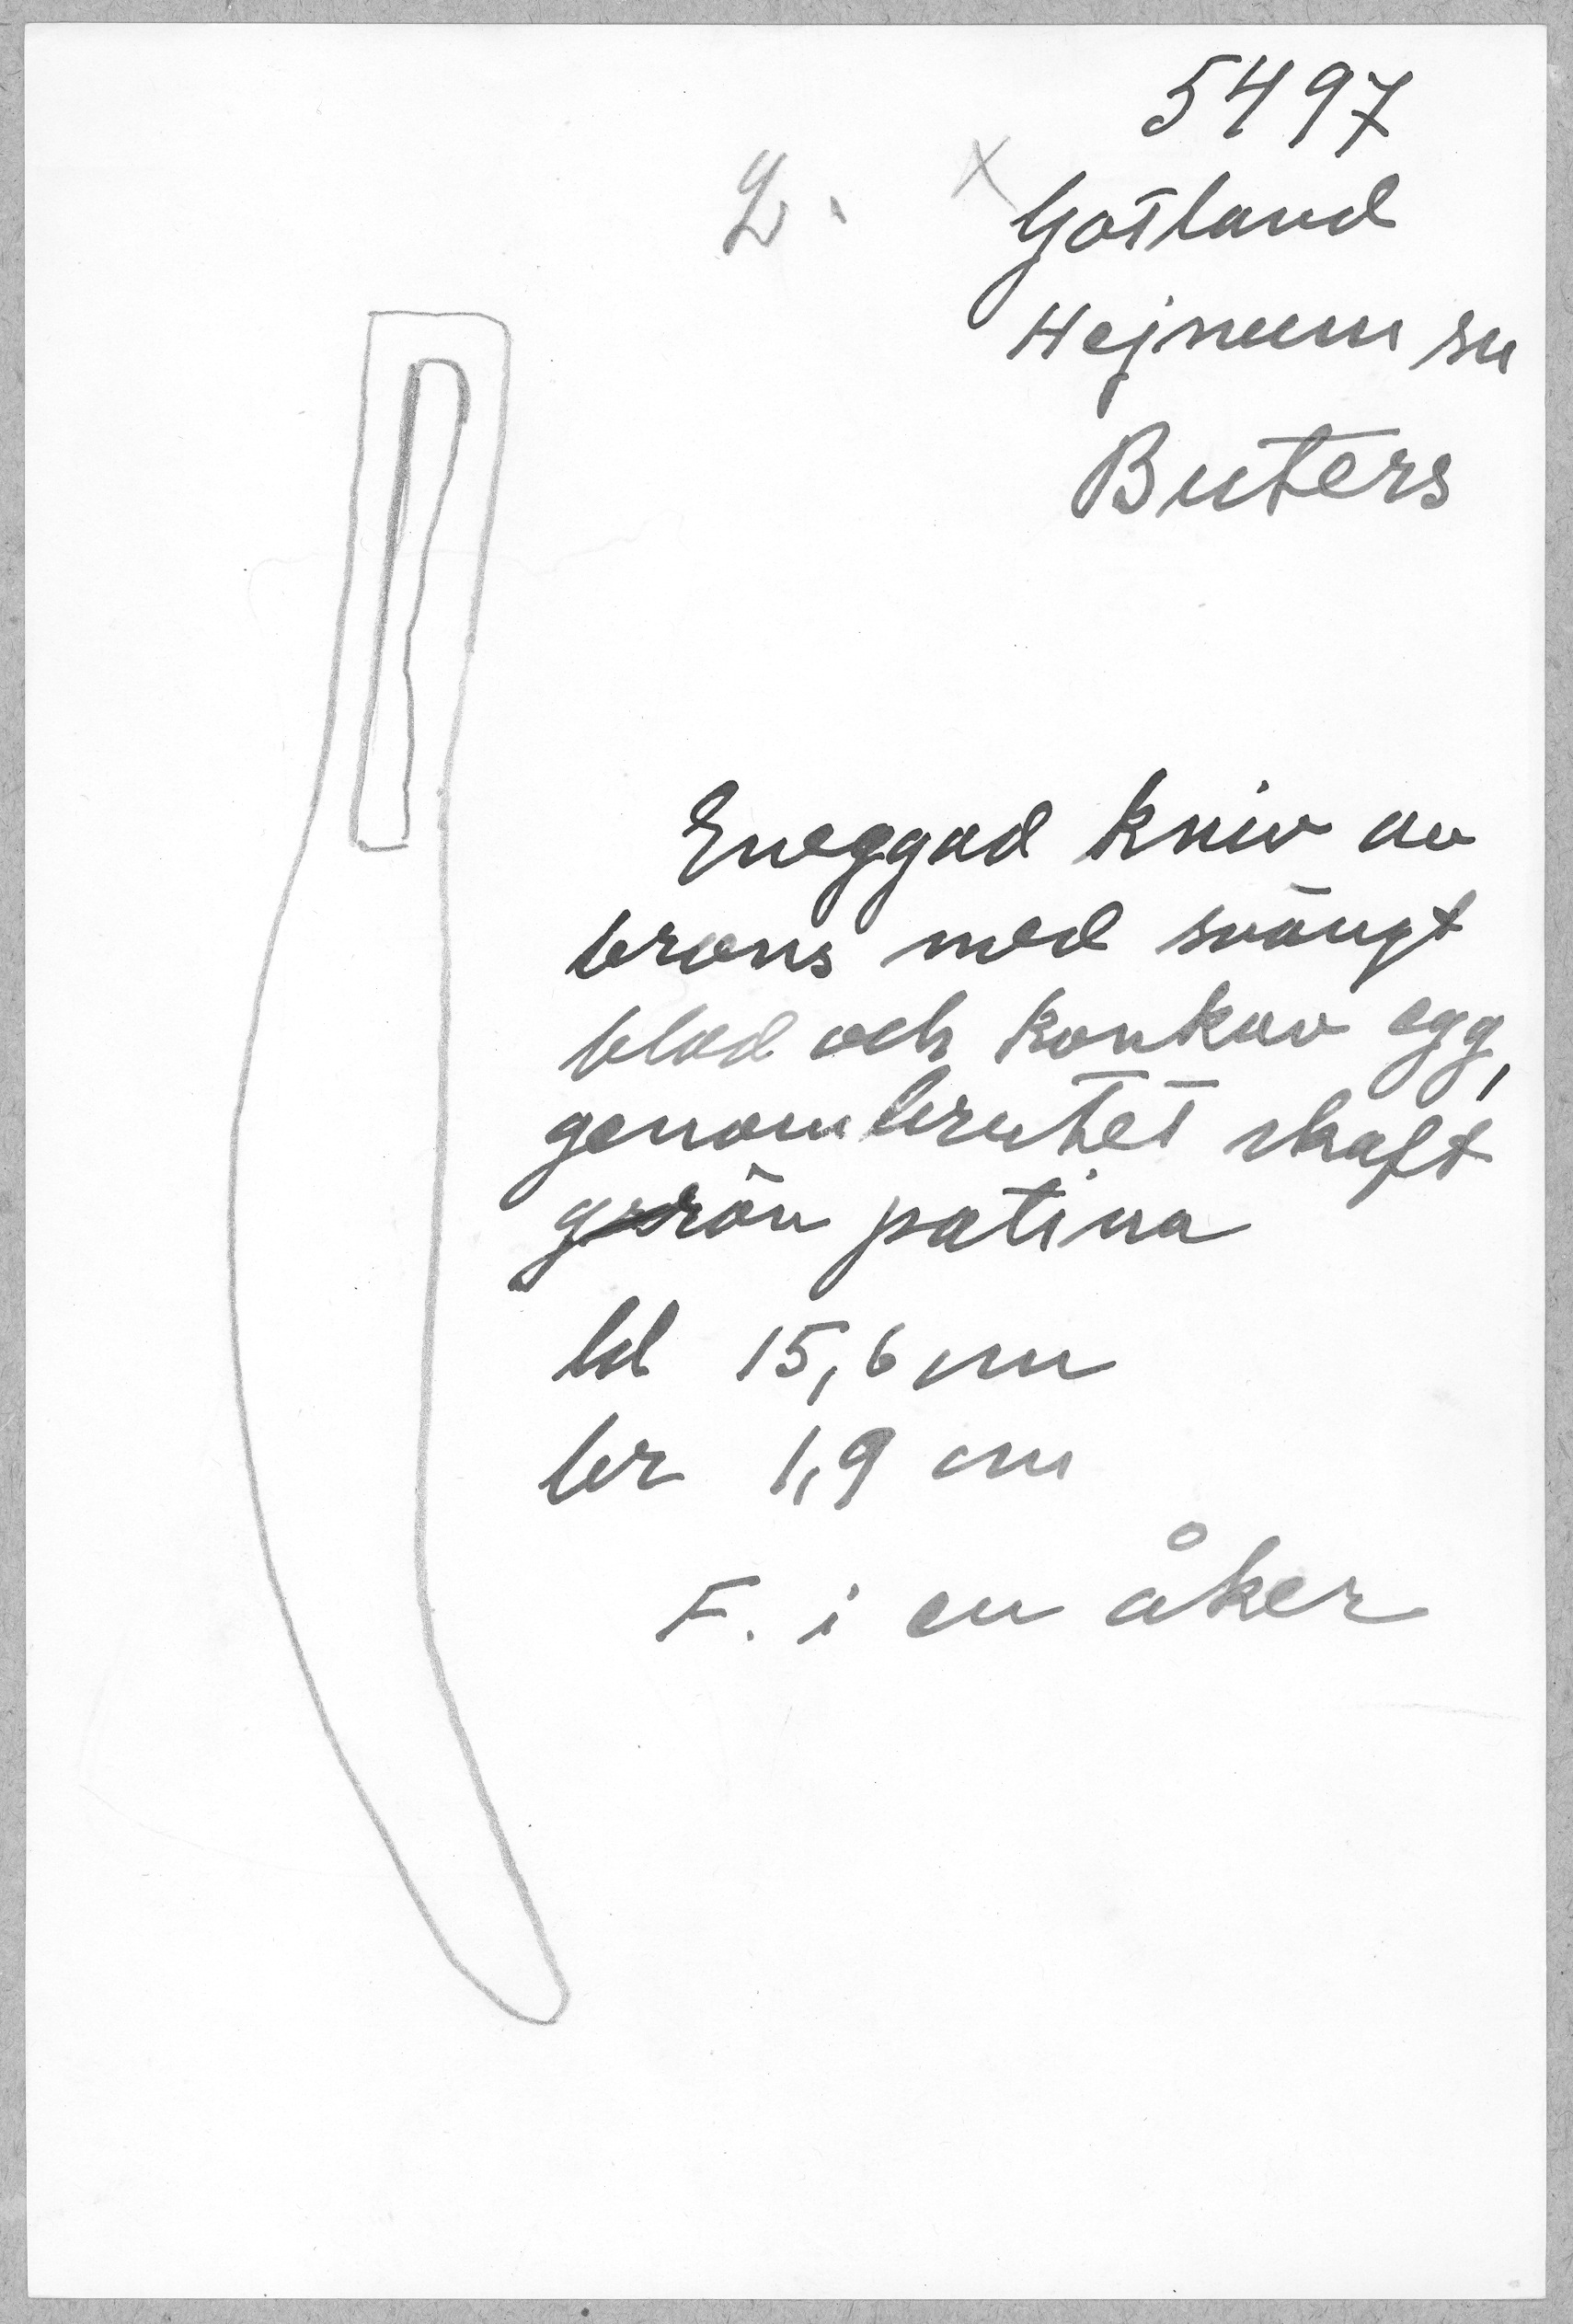 5497
2. x
Gotland
Hejnum sn
Buters
Eneggad kniv av
brons med svängt
blad och konkav egg,
genombrutet skaft
grön patina
ld 15,6 cm
br 1,9 cm
F. i en åker